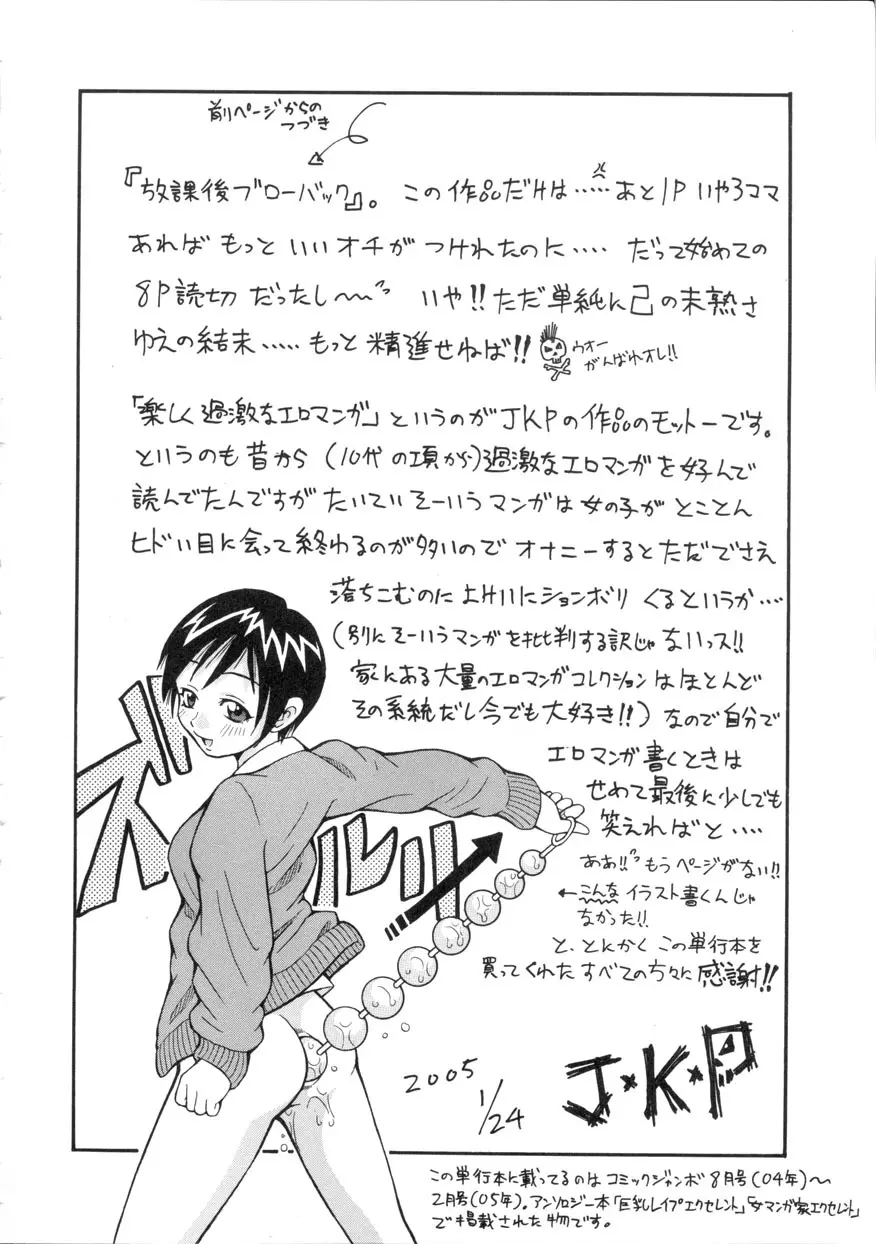 前ページからの
つづき
『放課後ブローバック』。この作品だけは……あと1Pいや3コマ
あればもっといいオチがつけれたのに…. だって始めての
8P読切だったし〜〜 いや!!ただ単純に己の未熟さ
ゆえの結末….. もっと精進せねば!!
ウオー
がんばれオレ!!
「楽しく過激なエロマンガ」というのがJKPの作品のモットーです。
というのも昔から(10代の項から)過激なエロマンガを好んで
読んでたんですがたいていそーいうマンガは女の子がとことん
ヒドい目に会って終わるのが多いのでオナニーするとただでさえ
落ちこむのによけいにションボリくるというか….
(別にそーいうマンガを批判する訳じゃないっス!!
家にある大量のエロマンガコレクションはほとんど
その系統だし今でも大好き!!)なので自分で
エロマンガ書くときは
せめて最後に少しでも
笑えればと….
ああ!!もうページがない!!
←こんなイラスト書くんじゃ
なかった!!
と、とにかくこの単行本を
買ってくれたすべての方々に感謝!!
ズルルリ
2005
1/24
J・K・P
この単行本に載ってるのはコミックジャンボ8月号(04年)〜
2月号(05年)。アンソロジー本「巨乳レイプエクセレント」「女マンガ家エクセレント」
で掲載された物です。